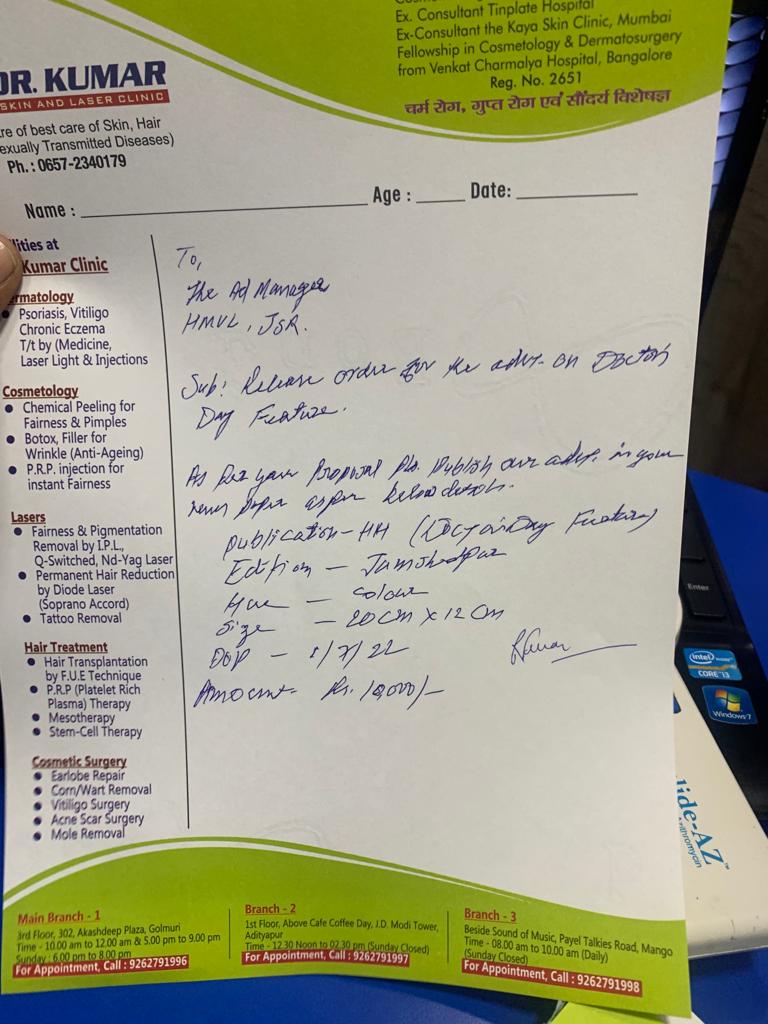 Ex. Consultant Tinplate Hospital
Ex-Consultant the Kaya Skin Clinic, Mumbai
Fellowship in Cosmetology & Dermatosurgery
from Venkat Charmalya Hospital, Bangalore
Reg. No. 2651
चर्म रोग, गुप्त रोग एवं सौंदर्य विशेषज्ञ
DR. KUMAR
SKIN AND LASER CLINIC
re of best care of Skin, Hair
exually Transmitted Diseases)
Ph.: 0657-2340179
Name : Age : Date:
ilities at
Kumar Clinic
ermatology
Psoriasis, Vitiligo
Chronic Eczema
T/t by (Medicine,
Laser Light & Injections
Cosmetology
Chemical Peeling for
Fairness & Pimples
Botox, Filler for
Wrinkle (Anti-Ageing)
P.R.P. injection for
instant Fairness
Lasers
Fairness & Pigmentation
Removal by I.P.L,
Q-Switched, Nd-Yag Laser
Permanent Hair Reduction
by Diode Laser
(Soprano Accord)
Tattoo Removal
Hair Treatment
Hair Transplantation
by F.U.E Technique
P.R.P (Platelet Rich
Plasma) Therapy
Mesotherapy
Stem-Cell Therapy
Cosmetic Surgery
Earlobe Repair
Corn/Wart Removal
Vitiligo Surgery
Acne Scar Surgery
Mole Removal
To,
The Ad Manager
HMVL, JSR.
Sub: Release order for the advt. on Doctor's
Day Feature.
As per your Proposal Pls. Publish our advt. in your
news paper as per below details.
Publication - HH ( Day Feature)
Edition - Jamshedpur
Hue - Colour
Size - 20 cm x 12 cm
DOP - 1/7/22
Amount - Rs. 10,000/-
Main Branch - 1
3rd Floor, 302, Akashdeep Plaza, Golmuri
Time - 10.00 am to 12.00 am & 5.00 pm to 9.00 pm
Sunday : 6.00 pm to 8.00 pm
For Appointment, Call : 9262791996
Branch - 2
1st Floor, Above Cafe Coffee Day, J.D. Modi Tower,
Adityapur
Time - 12.30 Noon to 02.30 pm (Sunday Closed)
For Appointment, Call : 9262791997
Branch - 3
Beside Sound of Music, Payel Talkies Road, Mango
Time - 08.00 am to 10.00 am (Daily)
(Sunday Closed)
For Appointment, Call : 9262791998
Enter
intel
CORE i3
Windows 7
lide-AZ
Azithromycin